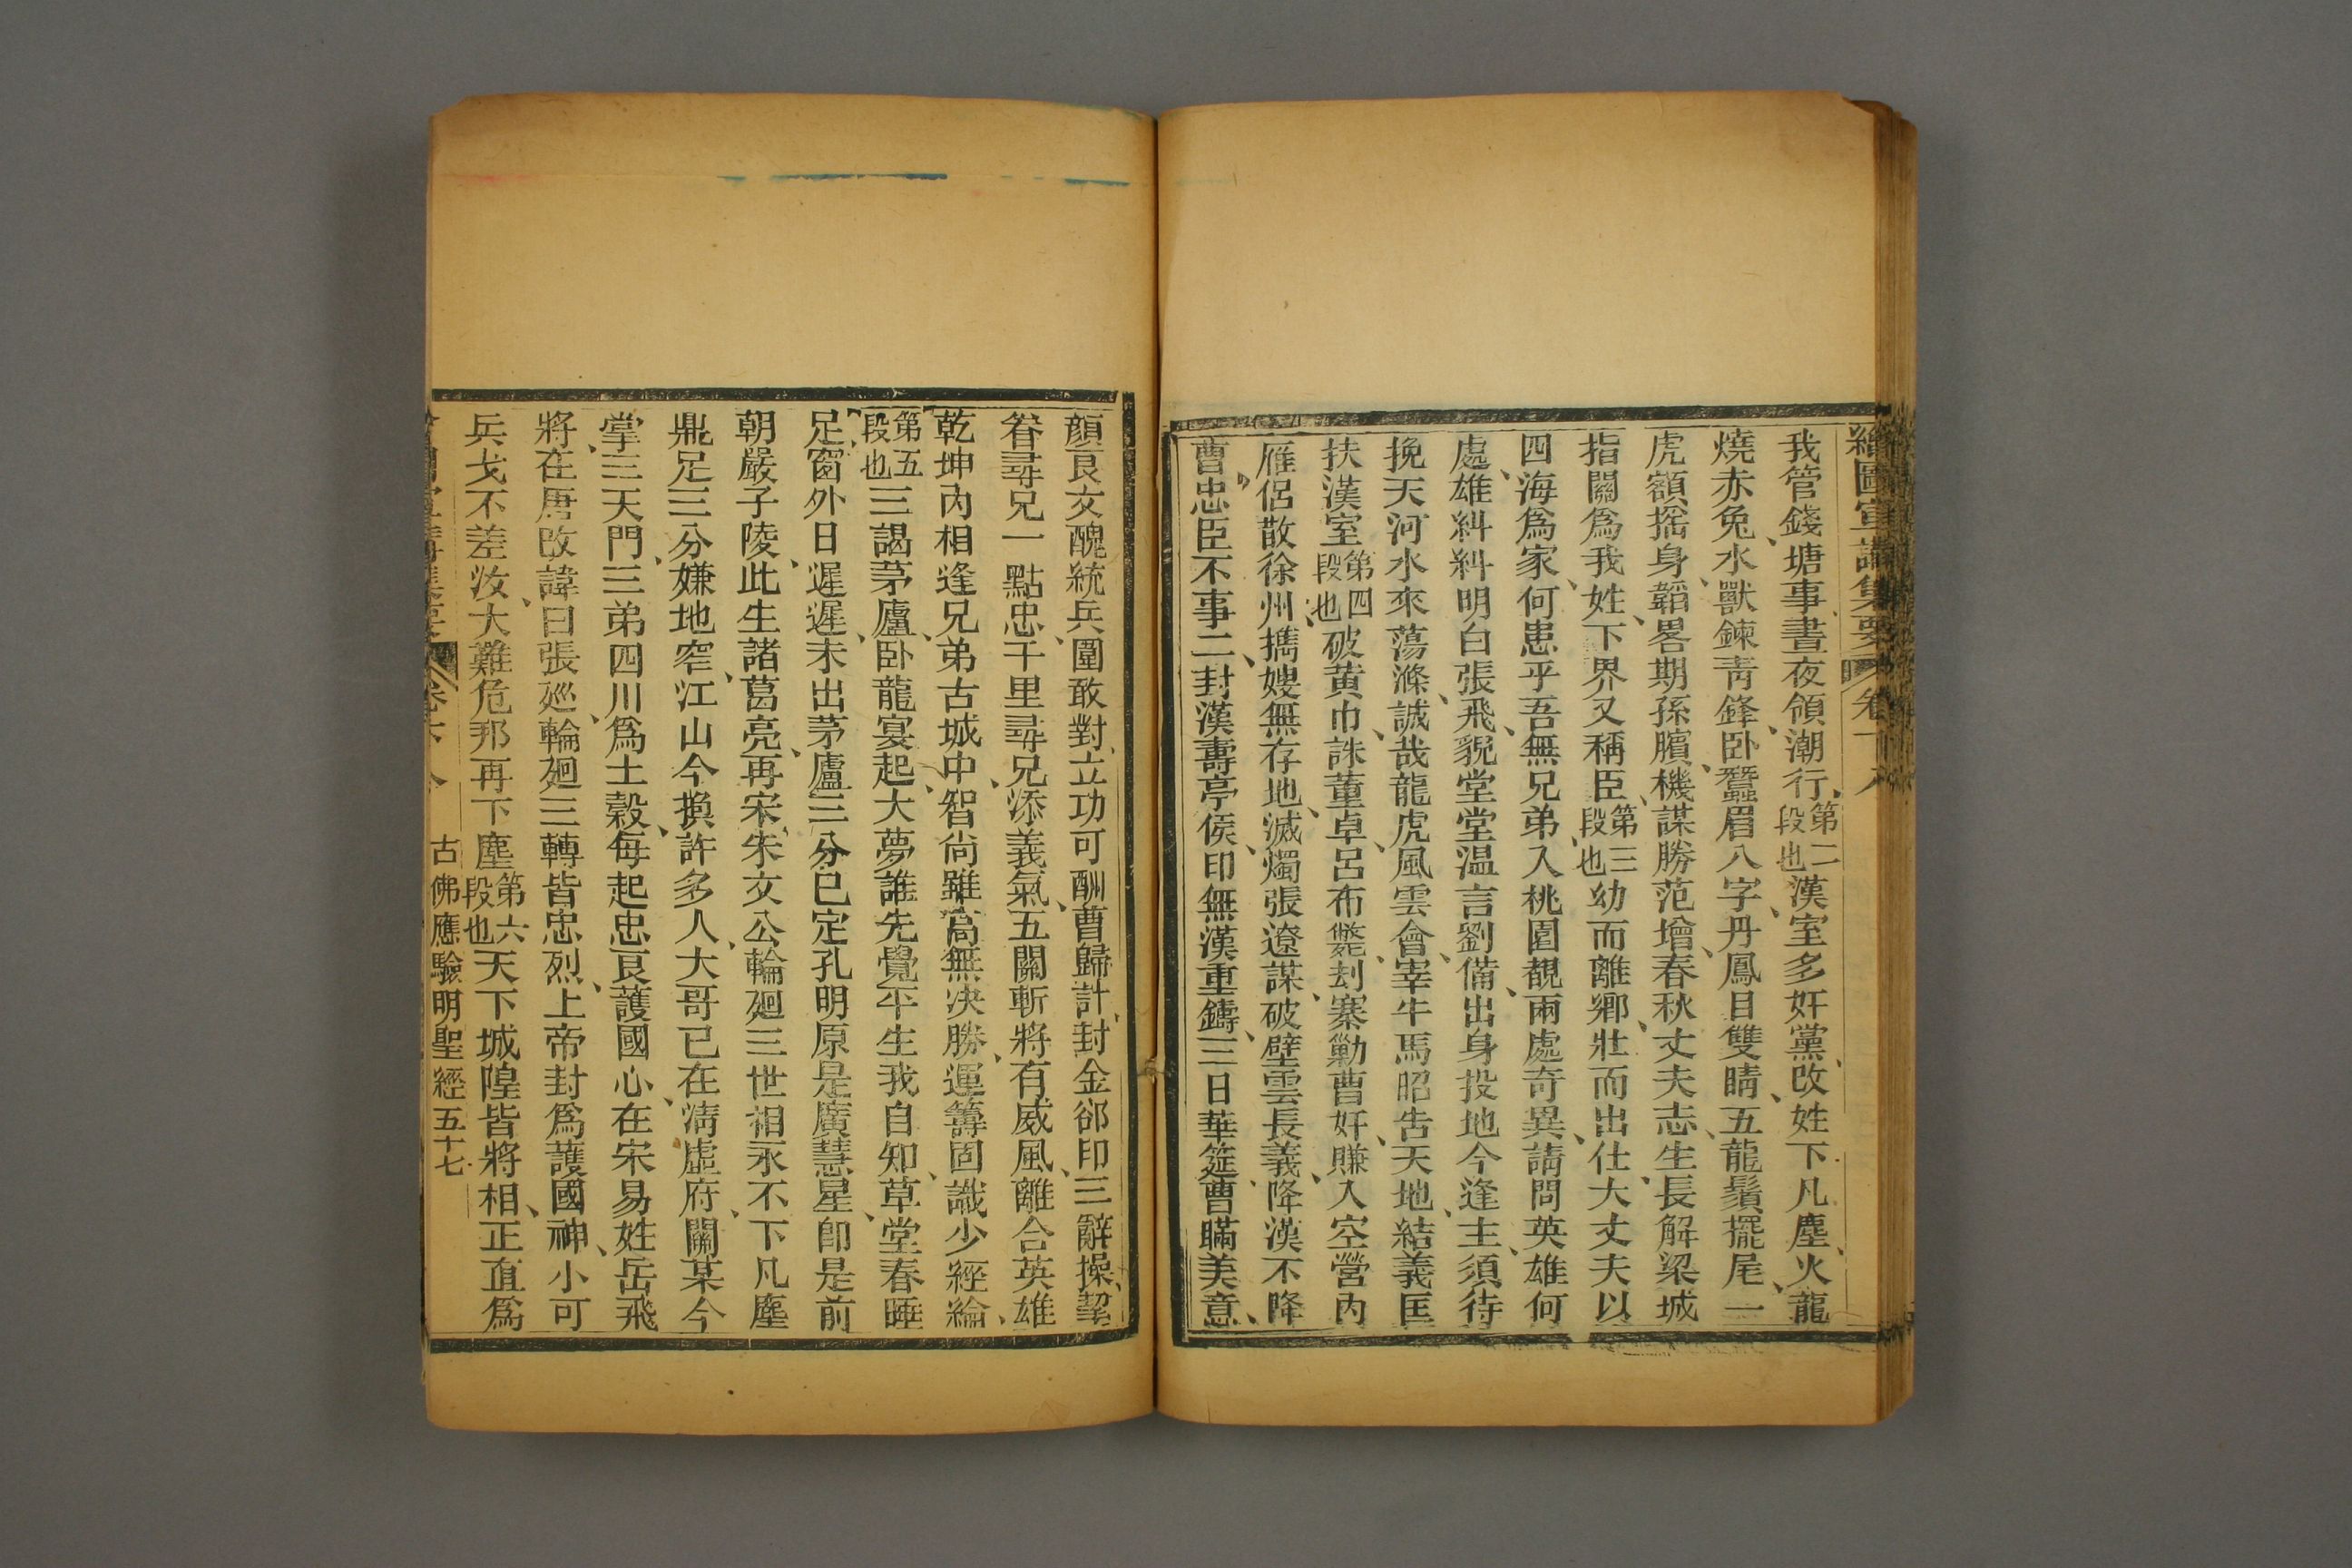 繪圖宣講集要 卷
我管錢塘事、晝夜領潮行、第二段也漢室多奸黨、改姓下凡塵、火龍
燒赤兔、水獸鍊青鋒、卧蠶眉八字、丹鳳目雙睛、五龍鬚擺尾、一
虎額揺身、韜畧期孫臏、機謀勝范增、春秋丈夫志、生長解梁城
指關爲我姓、下界又稱臣、第三段也幼而離鄉、壯而出仕、大丈夫以
四海爲家、何患乎吾無兄弟、入桃園覩兩處奇異、請問英雄何
處、雄糾糾明白張飛、貎堂堂温言劉備、出身投地今逢主、須待
挽天河水來蕩滌、誠哉龍虎風雲會、宰牛馬昭告天地、結義匡
扶漢室第四段也破黄巾、誅董卓、呂布斃、刦寨勦曹奸、賺入空營内
雁侶散徐州、擕嫂無存地、滅燭張遼謀、破壁雲長義、降漢不降
曹、忠臣不事二、封漢壽亭侯、印無漢重鑄、三日華筵、曹瞞美意、
顔良文醜統兵圍敢對、立功可酬曹歸計、封金郤印三辭操、挈
眷尋兄一點忠、千里尋兄添義氣、五關斬將有威風、離合英雄
乾坤内、相逢兄弟古城中、智尚雖高無決勝、運籌固識少經綸、
第五段也三謁茅廬、卧龍宴起、大夢誰先覺、平生我自知、草堂春睡
足、窗外日遲遲、未出茅廬三分已定、孔明原是廣慧星、卽是前
朝嚴子陵、此生諸葛亮、再宋朱文公、輪廻三世相、永不下凡塵
鼎足三分嫌地窄、江山今換許多人、大哥已在清虛府、關某今
掌三天門、三弟四川爲土穀、每起忠良護國心、在宋易姓岳飛
將、在唐改諱曰張巡、輪廻三轉皆忠烈、上帝封爲護國神、小可
兵戈不差汝、大難危邦再下塵第六段也天下城隍皆將相、正直爲
古佛應驗明聖經五十七